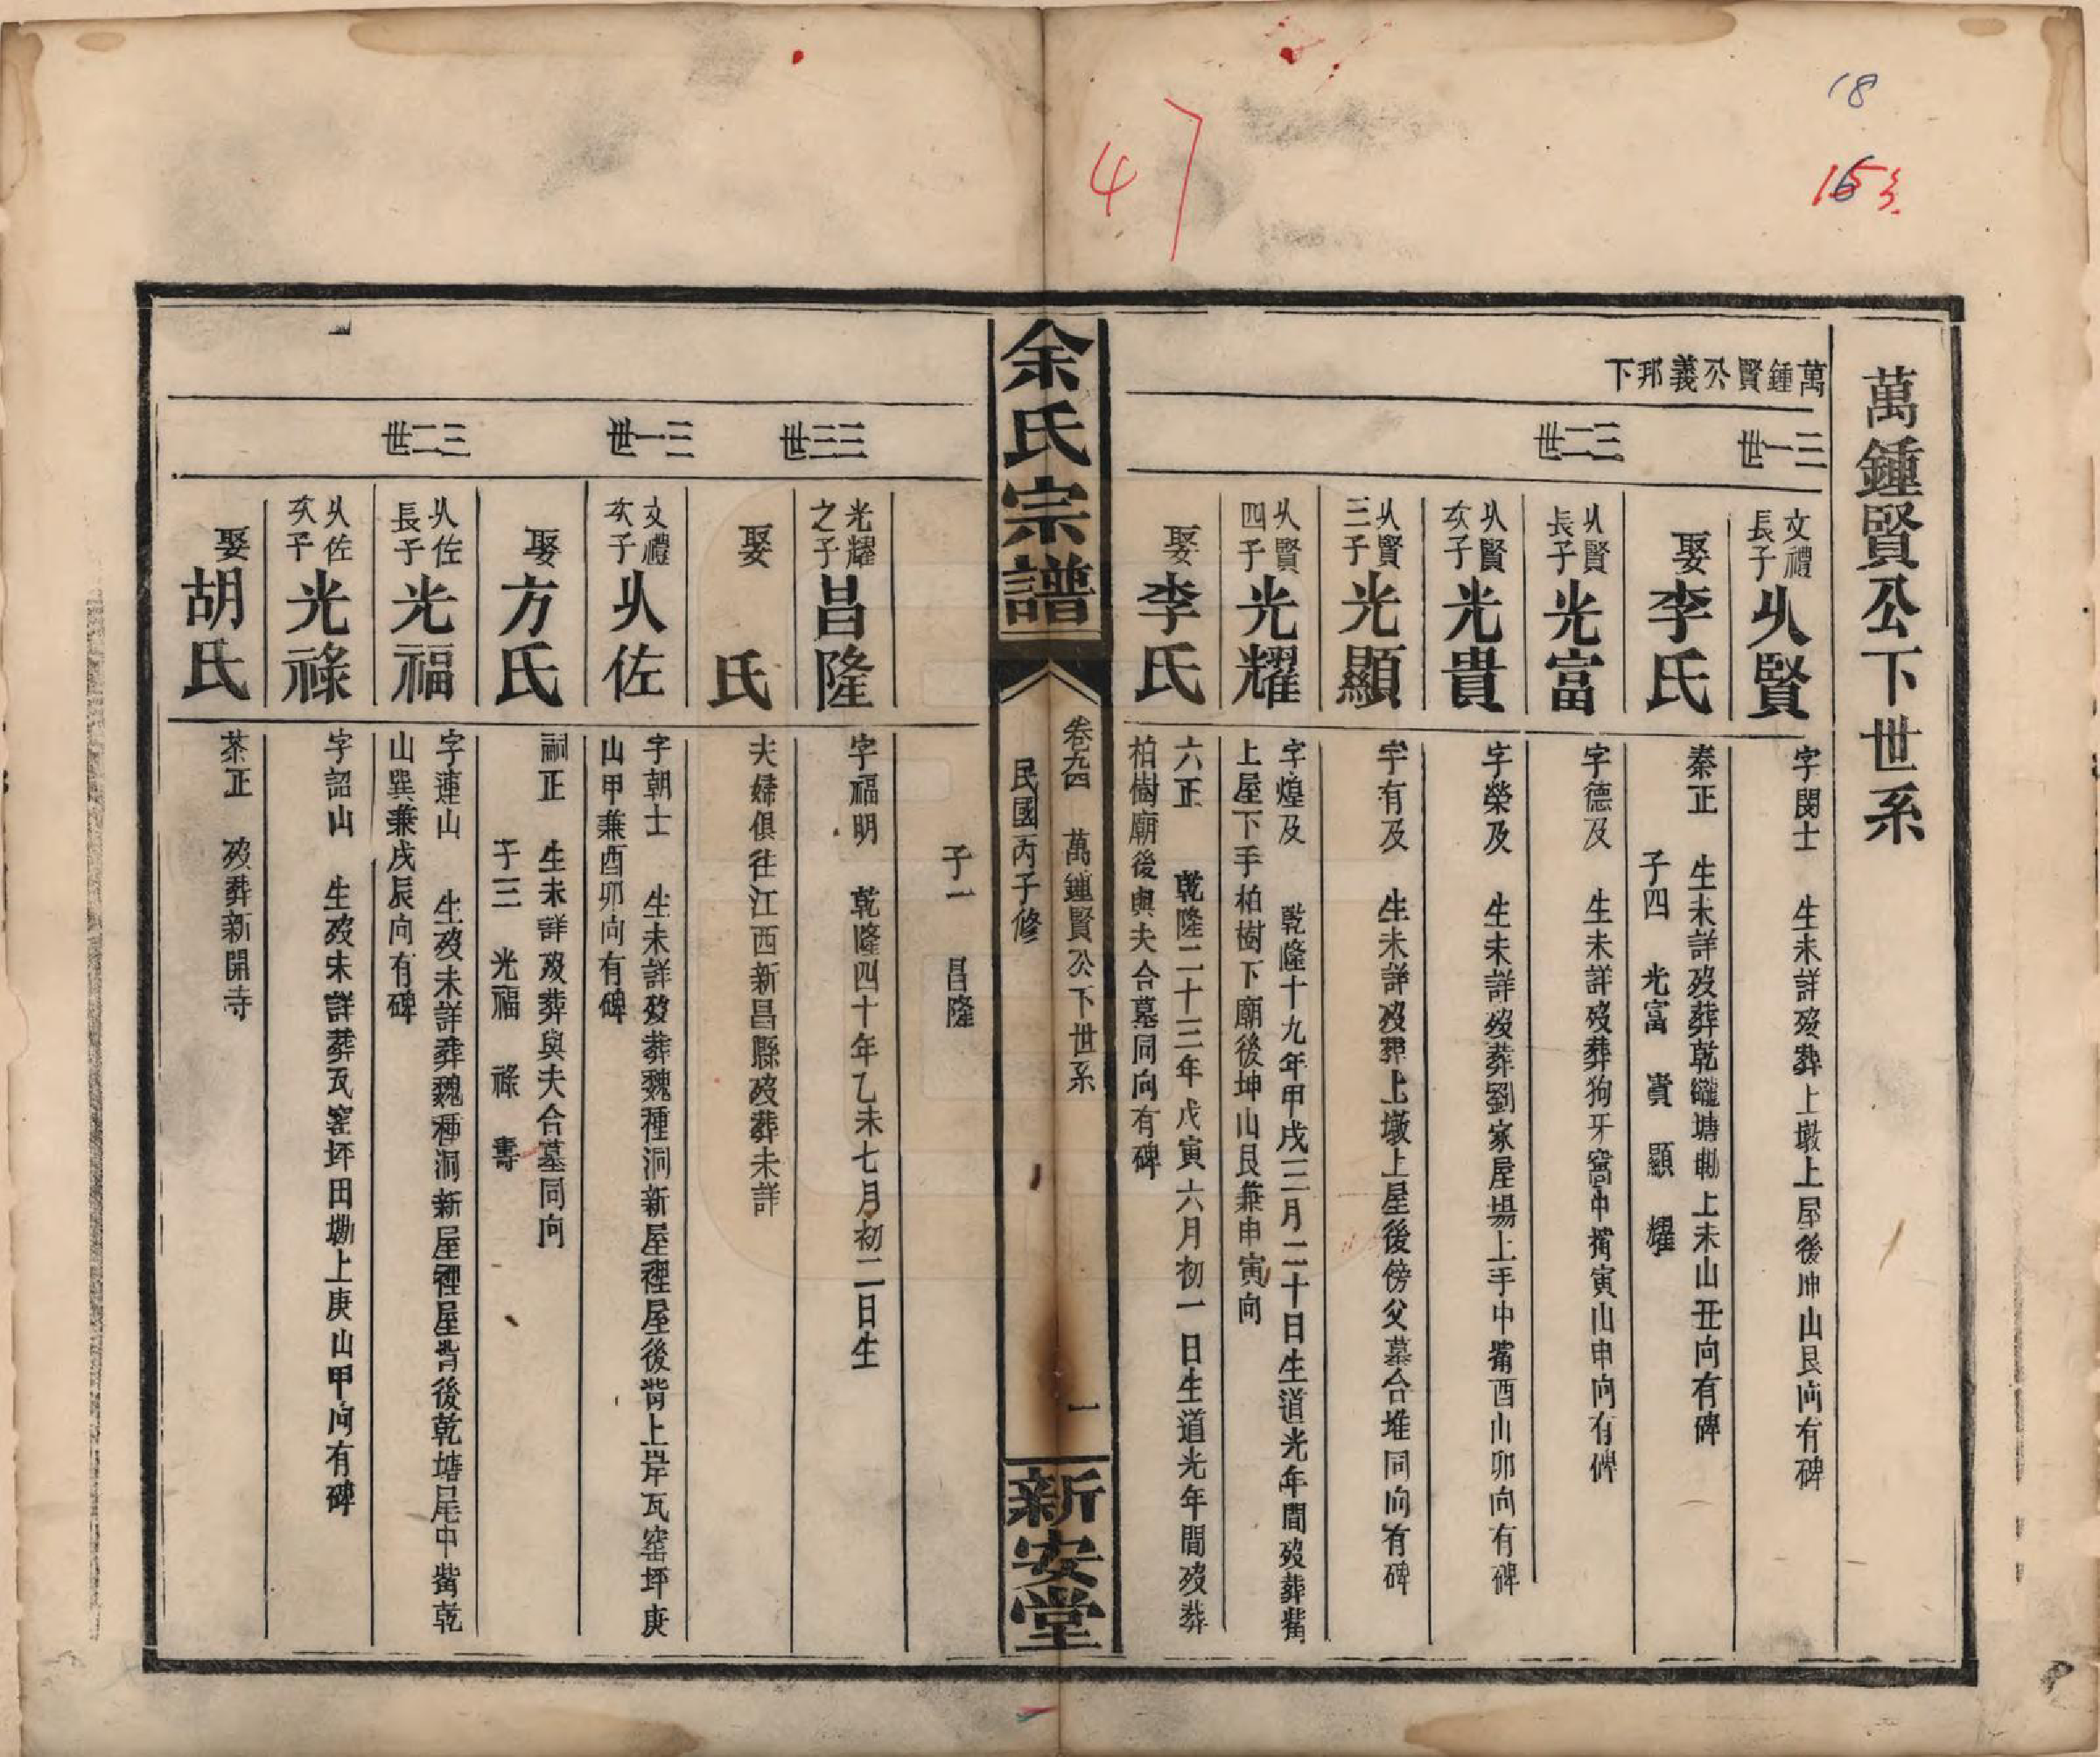 18
153
47
萬鍾賢公下世系
萬鍾賢公義邦下
三一世
文禮長子
乆賢
字閔士 生未詳歿葬上墩上屋後坤山艮向有碑
娶李氏
秦正 生未詳歿葬乾塘墈上未山丑向有碑
子四 光富 貴 顯 耀
三二世
乆賢長子
光富
字德及 生未詳歿葬狗牙窩中嘴寅山申向有碑
乆賢次子
光貴
字榮及 生未詳歿葬劉家屋場上手中嘴酉山卯向有碑
乆賢三子
光顯
字有及 生未詳歿葬上墩上屋後傍父墓合堆同向有碑
乆賢四子
光耀
字煌及 乾隆十九年甲戌三月二十日生道光年間歿葬嘴
上屋下手柏樹下廟後坤山艮兼申寅向
娶李氏
六正 乾隆二十三年戊寅六月初一日生道光年間歿葬
柏樹廟後與夫合墓同向有碑
余氏宗譜
卷九四 萬鍾賢公下世系 一
民國丙子修
新安堂
子一 昌隆
三三世
光耀之子
昌隆
字福明 乾隆四十年乙未七月初二日生
娶 氏
夫婦俱往江西新昌縣歿葬未詳
三一世
文禮次子
乆佐
字朝士 生未詳歿葬魏種洞新屋裡屋後嘴上岸瓦窑坪庚
山甲兼酉卯向有碑
娶方氏
嗣正 生未詳歿葬與夫合墓同向
子三 光福 祿 壽
三二世
乆佐長子
光福
字連山 生歿未詳葬魏種洞新屋裡屋背後乾塘尾中嘴乾
山巽兼戌辰向有碑
乆佐次子
光祿
字韶山 生歿未詳葬瓦窑坪田墈上庚山甲向有碑
娶胡氏
茶正 歿葬新開寺